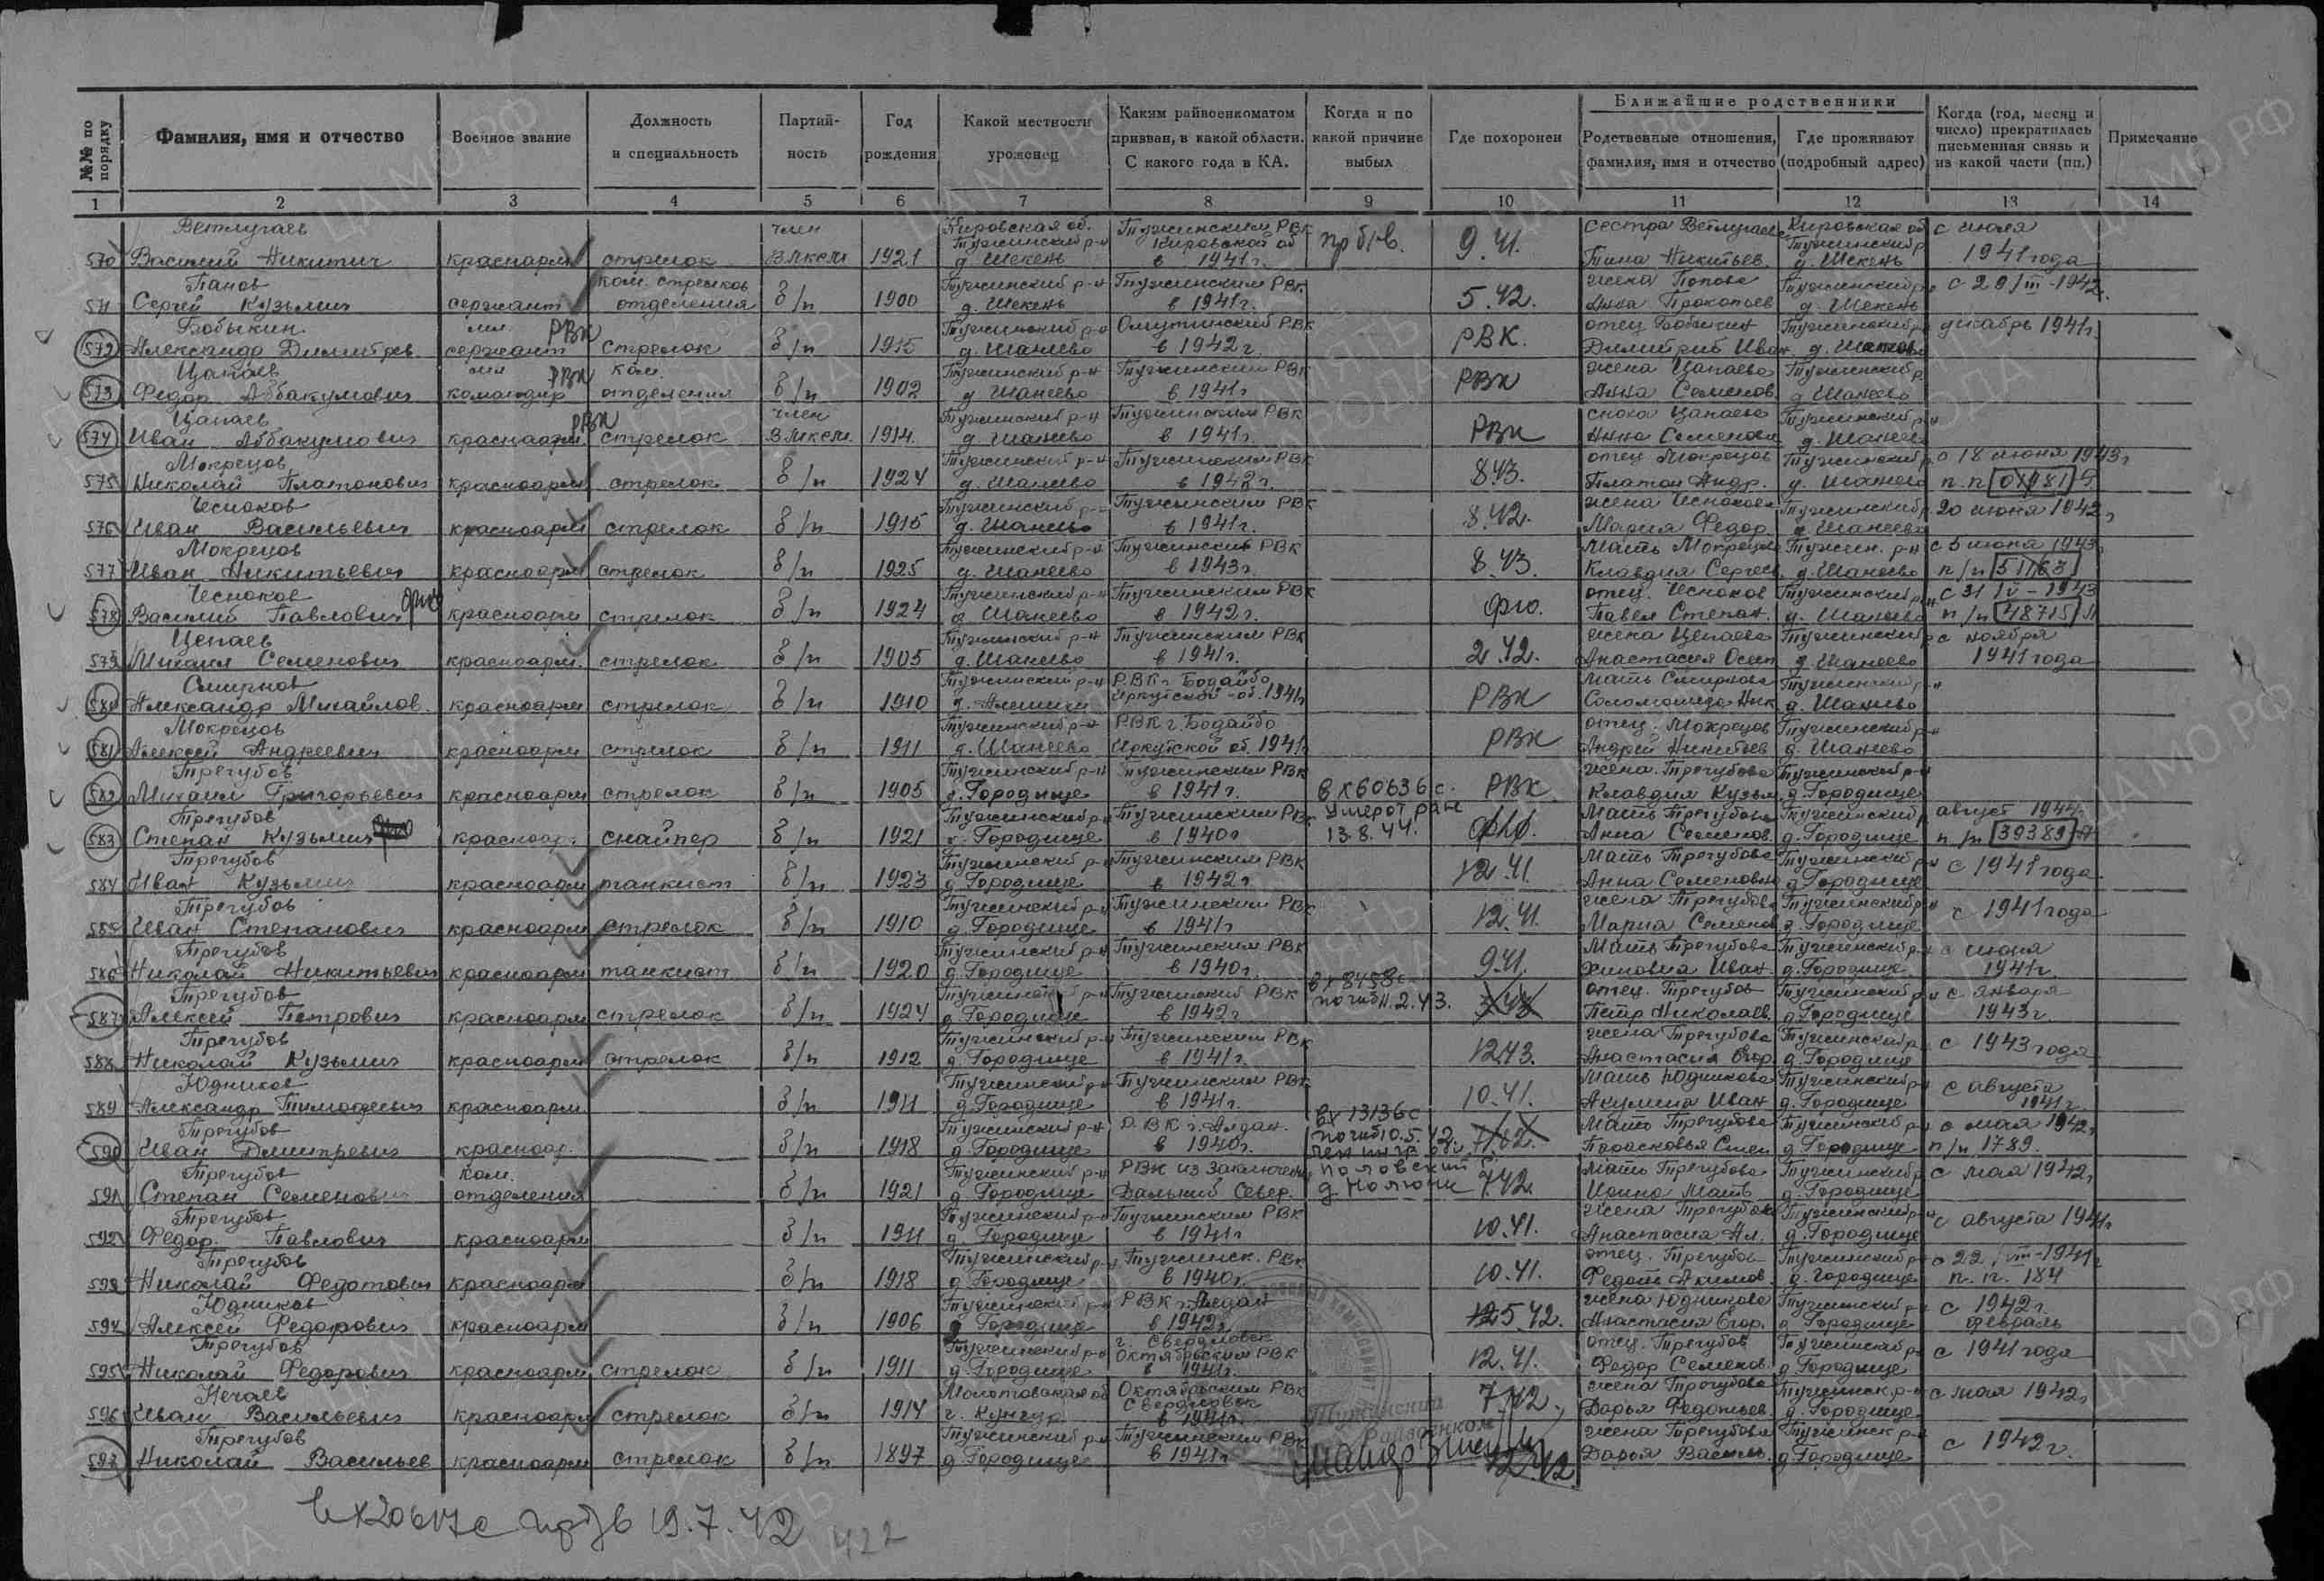 №№ по порядку
Фамилия, имя и отчество
Военное звание
Должность и специальность
Партий-ность
Год рождения
Какой местности уроженец
Каким райвоенкоматом призван, в какой области. С какого года в КА.
Когда и по какой причине выбыл
Где похоронен
Ближайшие родственники
Родственные отношения, фамилия, имя и отчество
Где проживают (подробный адрес)
Когда (год, месяц и число) прекратилась письменная связь и из какой части (пп.)
Примечание
1 2 3 4 5 6 7 8 9 10 11 12 13 14
Ветлугаев член Кировская об. Тужинским РВК сестра Кировская об с июля
570 Василий Никитич красноарм стрелок ВЛКСМ 1921 Тужинский р-н д. Шекень Кировской об в 1941г. пр б/в. 9.41. д. Шекень 1941 года
Панов ком. стрелков Тужинский р-н Тужинским РВК жена
571 Сергей Кузьмич сержант отделения б/п 1900 д. Шекень в 1941г. 5.42. Анна Прокопьев д. Шекень с 20/III-1942
Бобыкин мл. РВК Тужинский р-н Омутинский РВК отец Бобыкин декабрь 1941г.
572 Александр Димитрев. сержант стрелок б/п 1915 д. Шанеево в 1942г. РВК. Димитрий Иван.
Цапаев РВК ком. Тужинский р-н Тужинским РВК жена Цапаева
573 Федор Аббакумович командир отделения б/п 1902 д. Шанеево в 1941г РВК Анна Семенов. д. Шанеево
Цапаев РВК член Тужинский р-н Тужинским РВК Цапаева
574 Иван Аббакумович красноарм. стрелок ВЛКСМ. 1914. д. Шанеево в 1941г. РВК Анна Семенови
Мокрецов Тужинский р-н Тужинским РВК отец Мокрецов с 18 июня 1943г
575 Николай Платонович красноарм стрелок б/п 1924 д. Шанеево в 1942г. 8.43. Платон Андр. д. Шанеево
Чесноков Тужинским РВК жена 20 июня 1942г
576 Иван Васильевич красноарм стрелок б/п 1915 д. Шанеево в 1941г. 8.42. Мария Федор. д. Шанеево
Мокрецов Тужинский р-н Тужинский РВК мать Тужин. р-н с 5 июня 1943г
577 Иван Никитьевич красноарм стрелок б/п 1925 д. Шанеево в 1943г. 8.43. Клавдия Сергеев. д. Шанеево п/п 51163
Чесноков Тужинский р-н Тужинским РВК отец Чесноков с 31/IV-1943
578 Василий Павлович красноарм стрелок б/п 1924 д. Шанеево в 1942г. Павел Степан. д. Шанеево п/п 48715
Цепаев Тужинский р-н Тужинским РВК жена Цепаева с ноября
579 Михаил Семенович красноарм. стрелок б/п 1905 д. Шанеево в 1941г. 2.42. Анастасия Осип д. Шанеево 1941 года
Смирнов Тужинский р-н РВК г. Бодайбо мать Смирнова
580 Александр Михайлов. красноарм стрелок б/п 1910 Иркутской об. 1941г РВК д. Шанеево
Мокрецов Тужинский р-н РВК г. Бодайбо отец. Мокрецов Тужинский р-н
581 Алексей Андреевич красноарм стрелок б/п 1911 д. Шанеево Иркутской об. 1941г РВК Андрей Никитьев д. Шанеево
Трегубов Тужинский р-н Тужинским РВК жена. Трегубова Тужинский р-н
582 Михаил Григорьевич красноарм стрелок б/п 1905 д. Городище в 1941г. вх 60636с. РВК. Клавдия Кузьм. д. Городище
Трегубов Тужинский р-н Тужинским РВК Умер от ран мать Трегубова август 1944г.
583 Степан Кузьмич красноар. снайпер б/п 1921 д. Городище в 1940г 13.8.44. Анна Семенов. д. Городище п/п 39389
Трегубов Тужинский р-н Тужинским РВК мать Трегубова Тужинский р-н
584 Иван Кузьмич красноарм танкист б/п 1923 д. Городище в 1942г 12.41. Анна Семеновна д. Городище с 1941 года
Трегубов Тужинский р-н Тужинским РВК жена Трегубова Тужинский р-н
585 Иван Степанович красноарм стрелок б/п 1910 д. Городище в 1941г 12.41. Мария Семенов д. Городище с 1941 года
Трегубов Тужинский р-н Тужинским РВК мать Трегубова Тужинский р-н с июня
586 Николай Никитьевич красноарм танкист б/п 1920 д. Городище в 1940г. 9.41. Иван. д. Городище 1941г.
Трегубов Тужинский РВК вх 8458с отец. Трегубов Тужинский р-н с января
587 Алексей Петрович красноарм стрелок б/п 1924 д. Городище в 1942г погиб 11.2.43. Петр Николаев. д. Городище 1943г.
Трегубов Тужинский р-н Тужинским РВК жена Трегубова Тужинский р-н
588 Николай Кузьмич красноарм стрелок б/п 1912 д. Городище в 1941г. 12.43. Анастасия Егор. д. Городище с 1943 года
Юдников Тужинский р-н Тужинским РВК мать Юдникова Тужинский р-н с августа
589 Александр Тимофеевич красноарм б/п 1911 д. Городище в 1941г. 10.41. Акулина Иван д. Городище 1941г.
Трегубов Тужинский р-н РВК г. Алдан. вх 13136с мать Трегубова Тужинский р-н с мая 1942г
590 Иван Дмитревич красноар. б/п 1918 д. Городище в 1940г. погиб 10.5.42. Парасковья Степ д. Городище п/п 1789.
Трегубов ком. Тужинский р-н РВК из заключения мать Трегубова Тужинский р-н
591 Степан Семенович отделения б/п 1921 д. Городище Дальний Север. 7.42. д. Городище с мая 1942г
Трегубов Тужинский р-н Тужинским РВК жена Трегубова Тужинский р-н
592 Федор. Павлович красноарм б/п 1911 д. Городище в 1941г 10.41. Анастасия Ал. д. Городище с августа 1941г
Трегубов Тужинский р-н Тужинск. РВК отец. Трегубов Тужинский р-н с 22/VIII-1941г
593 Николай Федотович красноарм б/п 1918 д. Городище в 1940г. 10.41. Федот Акимов. д. Городище п.п. 184
Юдников Тужинский р-н РВК г. Алдан жена Юдникова Тужинский р-н с 1942г.
594 Алексей Федорович красноарм б/п 1906 д. Городище в 1942г. 5.42. Анастасия Егор. д. Городище февраль
Трегубов Тужинский р-н г. Свердловск Октябрьским РВК отец. Трегубов Тужинский р-н
595 Николай Федорович красноарм стрелок б/п 1911 д. Городище в 1941г. 12.41. Федор Семенов. д. Городище с 1941 года
Нечаев Молотовская об Октябрьским РВК Свердловск жена Трегубова Тужинск. р-н
596 Иван Васильевич красноарм стрелок б/п 1914 г. Кунгур в 1941г. 7.42. Дарья Федотьев. д. Городище с мая 1942г
Трегубов Тужинский р-н Тужинским РВК жена Трегубова Тужинск р-н
597 Николай Васильев красноарм стрелок б/п 1897 д. Городище в 1941г Дарья Василь. д. Городище с 1942г.
Тужинский Райвоенком
вх20617с пр б/в 19.7.42
422
ЦАМО РФ
ПАМЯТЬ НАРОДА